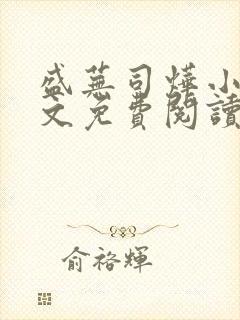 盛蕪司燁小
文免費閱讀
俞裕輝